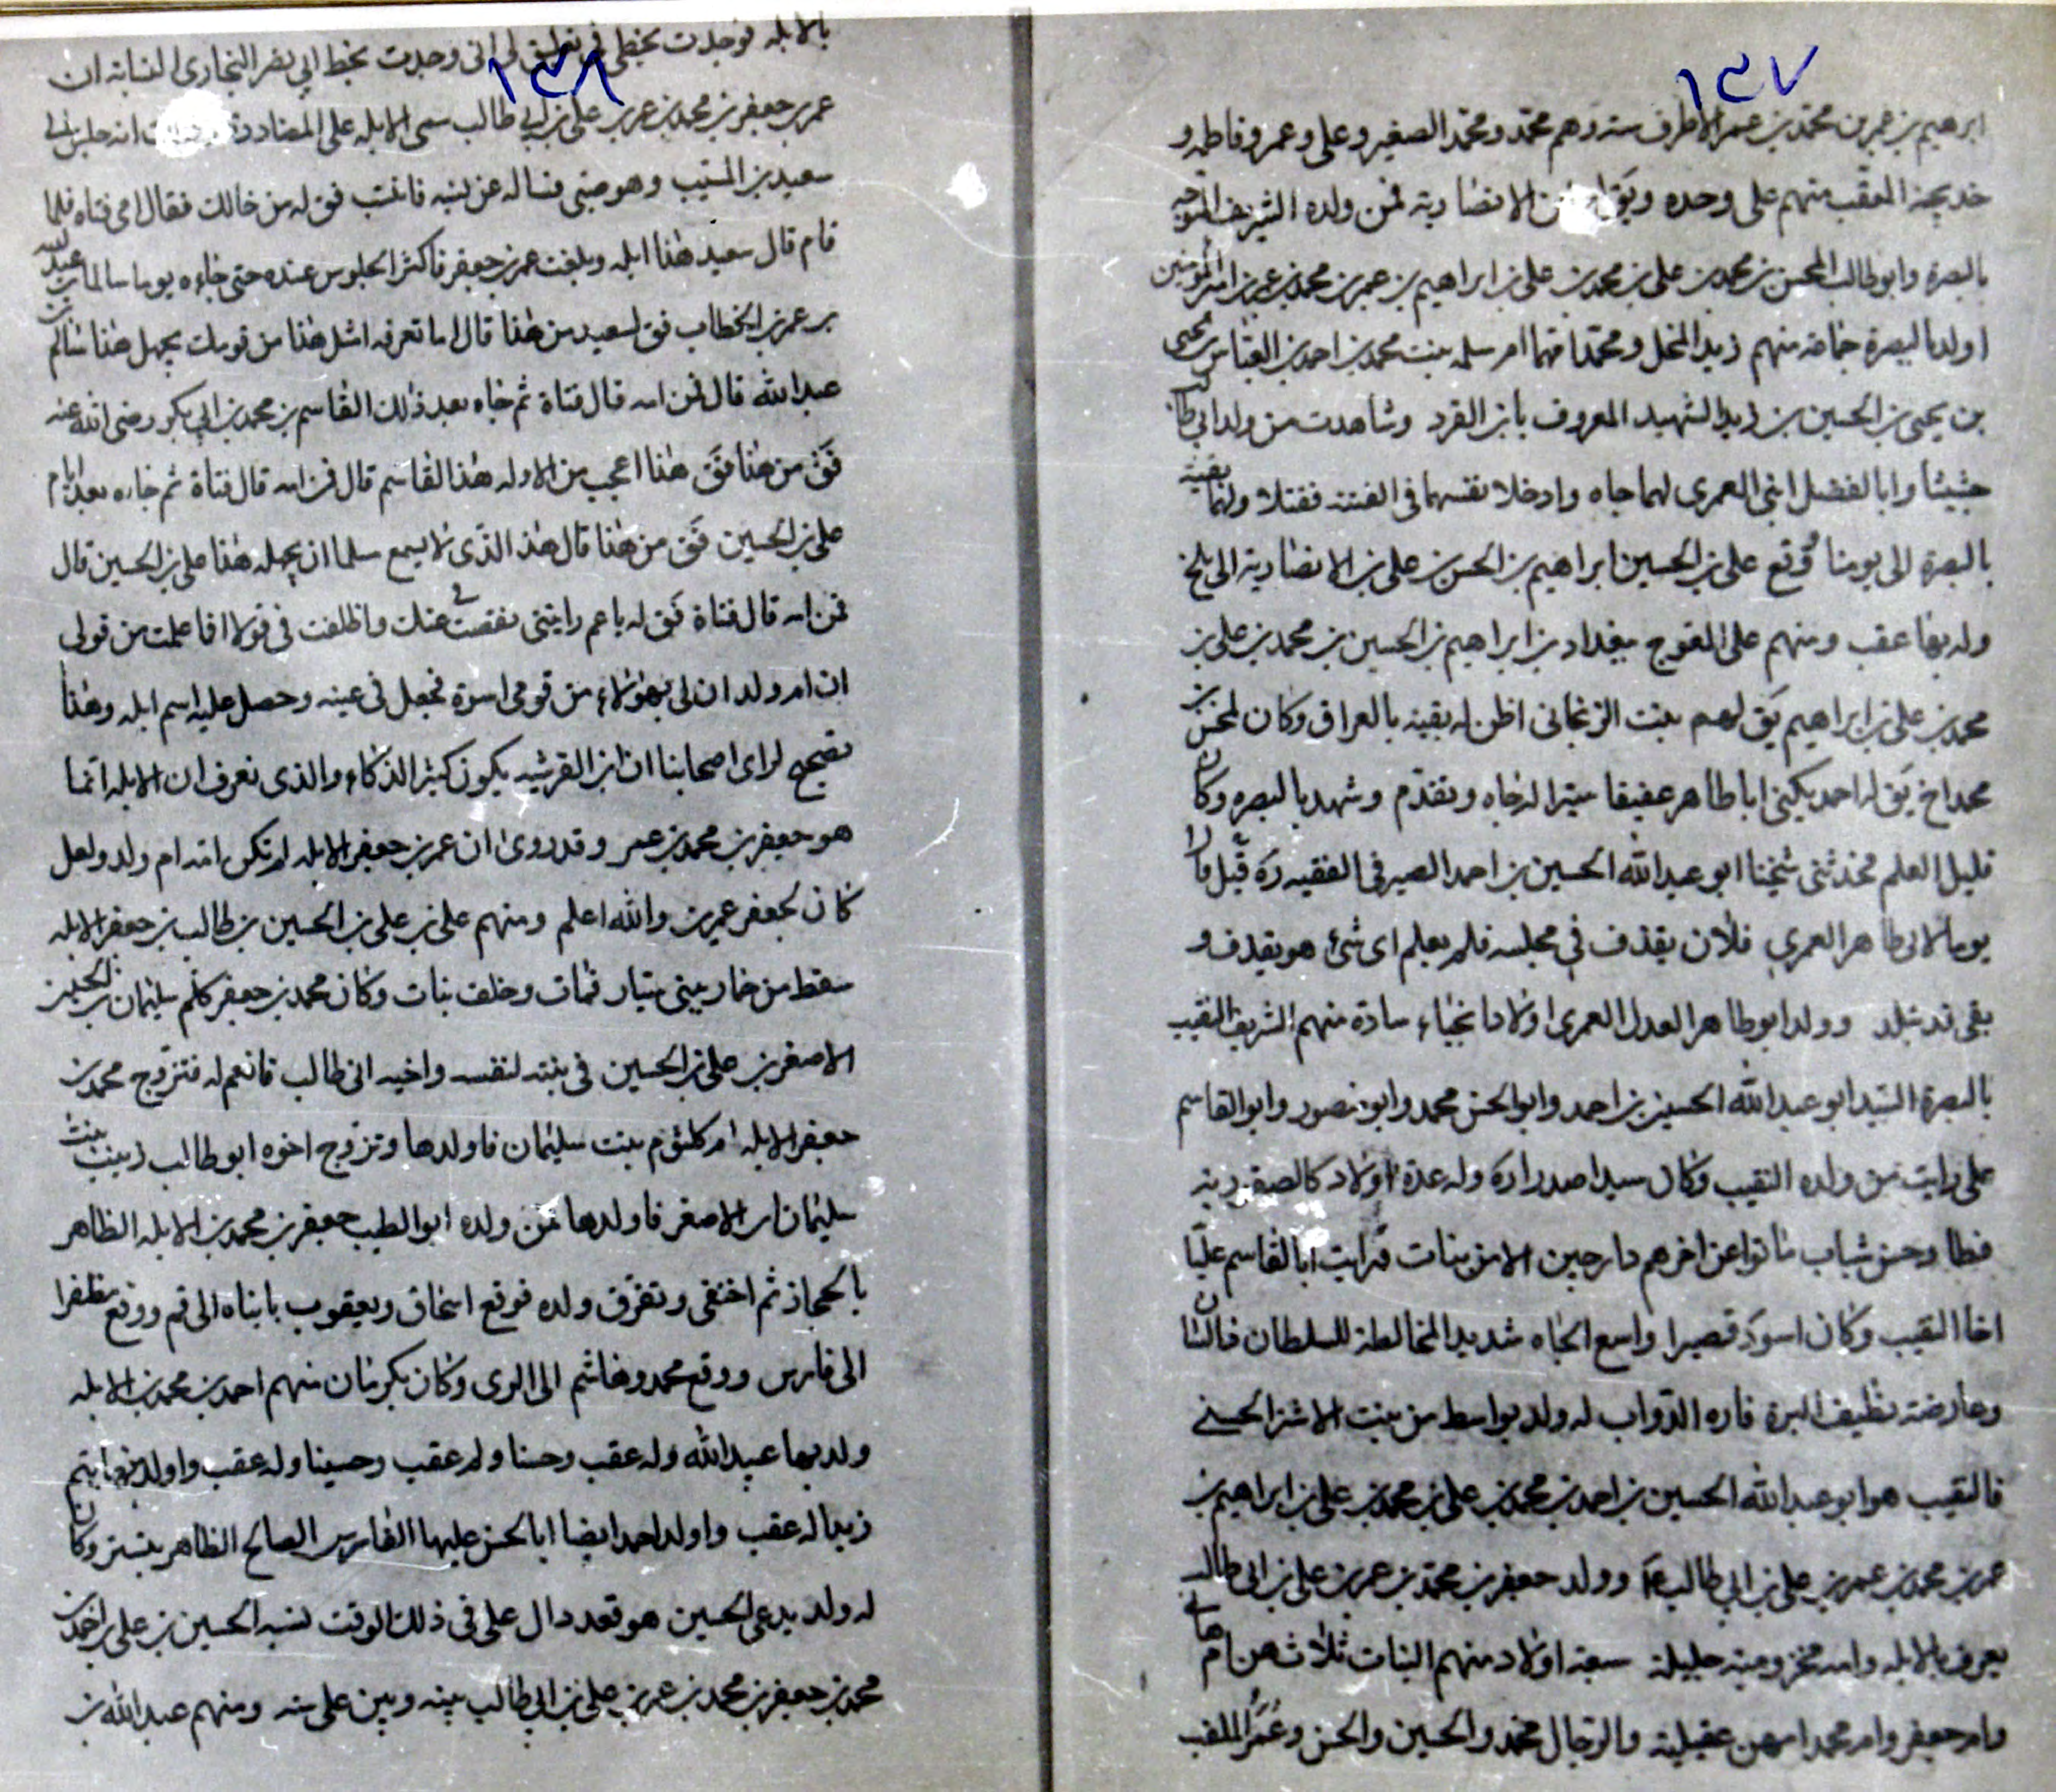 ١٣٧
ابرهيم بن عمر بن محمد بن عمر الاطرف ستة وهم محمد ومحمد الصغير وعلى وعمر وفاطمه و
خديجة العقب منهم على وحده ويق له ابن الانصارية فمن ولده الشريف
بالبصرة وابو طالب المحسن بن محمد بن على بن محمد بن على بن ابراهيم بن عمر بن محمد بن عمر بن امير المؤمنين
اولد بالبصرة جماعة منهم زيد المخل ومحمد امهما ام سلمه بنت محمد بن احمد بن العباس بن يحيى
بن يحيى بن الحسين بن زيد الشهيد المعروف بابن القرد وشاهدت من ولد ابى طالب
وابا الفضل ابنى العمرى لهما جاه وادخلا نفسهما فى الفتنة فقتلا ولهما بقية
بالبصرة الى يومنا وقع على بن الحسين ابراهيم بن الحسن بن على بن الانصارية الى بلخ
وله بها عقب ومنهم على المفوج ببغداد بن ابراهيم بن الحسين بن محمد بن على بن
محمد بن على بن ابراهيم يق لهم بنت الزنجانى اظن له بقية بالعراق وكان لمحسن بن
محمد اخ يق له احمد يكنى ابا طاهر عفيفا ستيرا له جاه وتقدم وشهد بالبصره وكان
قليل العلم فحدثنى شيخنا ابو عبد الله الحسين بن احمد الصيرفى الفقيه ره قيل
يوما لابى طاهر العمرى فلان يقذف فى مجلسه فلم يعلم اى شئ هو يقذف و
بقى قد تبلد وولد ابو طاهر العدل العمرى اولادا نجباء سادة منهم الشريف النقيب
بالبصرة السيد ابو عبد الله الحسين بن احمد وابو الحسن محمد وابو منصور وابو القاسم
على رايت من ولده النقيب وكان سيدا صدرا ره وله عدة اولاد كالصقر
وحسن شباب ماتوا عن اخرهم دارجين الا من بنات ورايت ابا القاسم عليا
اخا النقيب وكان اسود قصيرا واسع الجاه شديد المخالطة للسلطان
وعارضة نظيف البزة فاره الدواب له ولد بواسط من بنت الاشتر الحسينى
فالنقيب هو ابو عبد الله الحسين بن احمد بن محمد بن على بن محمد بن على بن ابراهيم بن
عمر بن محمد بن عمر بن على بن ابى طالب ع وولد جعفر بن محمد بن عمر بن على بن ابى طالب
يعرف بالابله وامه مخزومية جليلة سبعة اولاد منهم البنات ثلاث هن ام هانى
وام جعفر وام محمد امهن عقيلية والرجال محمد والحسين والحسن وعمر الملقب
١٣٨
بالابله فوجدت بخطى فى تعليق لى انى وجدت بخط ابى نصر البخارى النسابة ان
عمر بن جعفر بن محمد بن عمر بن على بن ابى طالب سمى الابله على المضادة انه جلس الى
سعيد بن المسيب وهو صبى فساله عن نسبه فانتسب فق له من خالك فقال امى فتاه فلما
قام قال سعيد هذا ابله وبلغت عمر بن جعفر فاكثر الجلوس عنده حتى جاءه يوما سالم بن عبد الله
بن عمر بن الخطاب فق لسعيد من هذا قال اما تعرفه امثل هذا من قومك يجهل هذا سالم بن
عبد الله قال فمن امه قال فتاة ثم جاه بعد ذلك القاسم بن محمد بن ابى بكر رضى الله عنه
فق من هذا فق هذا اعجب من الاول هذا القاسم قال فمن امه قال فتاة ثم جاءه بعد ايام
على بن الحسين فق من هذا قال هذا الذى لا يسع مسلما ان يجهله هذا على بن الحسين قال
فمن امه قال فتاة فق له يا عم رايتنى نقصت فى عينك وانطلقت فى قولا افا علمت من قولى
ان ام ولد ان لى بهؤلاء من قومى اسوة فجعل فى عينه وحصل عليه اسم ابله وهذا
تصحيح لراى اصحابنا ان ابن القرشيه يكون كثير الذكاء والذى نعرف ان الابله انما
هو جعفر بن محمد بن عمر وقد روى ان عمر بن جعفر الابله لم تكن امه ام ولد ولعل
كان لجعفر عمرين والله اعلم ومنهم على بن على بن الحسين بن طالب بن جعفر الابله
سقط من فمات وخلف بنات وكان محمد بن جعفر كلم سليمان بن الحسين
الاصغر بن على بن الحسين فى بنته لنفسه واخيه ابى طالب فانعم له فتزوج محمد بن
جعفر الابله ام كلثوم بنت سليمان فاولدها وتزوج اخوه ابو طالب زينب بنت
سليمان بن الاصغر فاولدها فمن ولده ابو الطيب جعفر بن محمد بن الابله الظاهر
بالحجاز ثم اختفى وتفرق ولده فوقع اسحاق ويعقوب بابناه الى قم ووقع مظفرا
الى فارس ووقع محمد وهاشم الى الرى وكان بكرمان منهم احمد بن محمد بن الابله
ولد بها عبيد الله وله عقب وحسنا وله عقب وحسينا وله عقب واولد
زيدا له عقب واولد احمد ايضا ابا الحسن عليها الفارس الصالح الظاهر بتستر وكان
له ولد يدعى الحسين هو قعدد ال على فى ذلك الوقت نسبه الحسين بن على بن احمد بن
محمد بن جعفر بن محمد بن عمر بن على بن ابى طالب بينه وبين على ستة ومنهم عبد الله بن